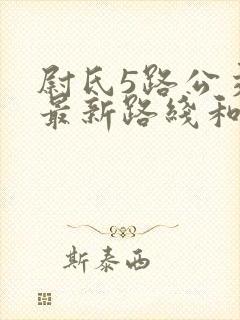 尉氏5路公
最新路线和
斯泰西